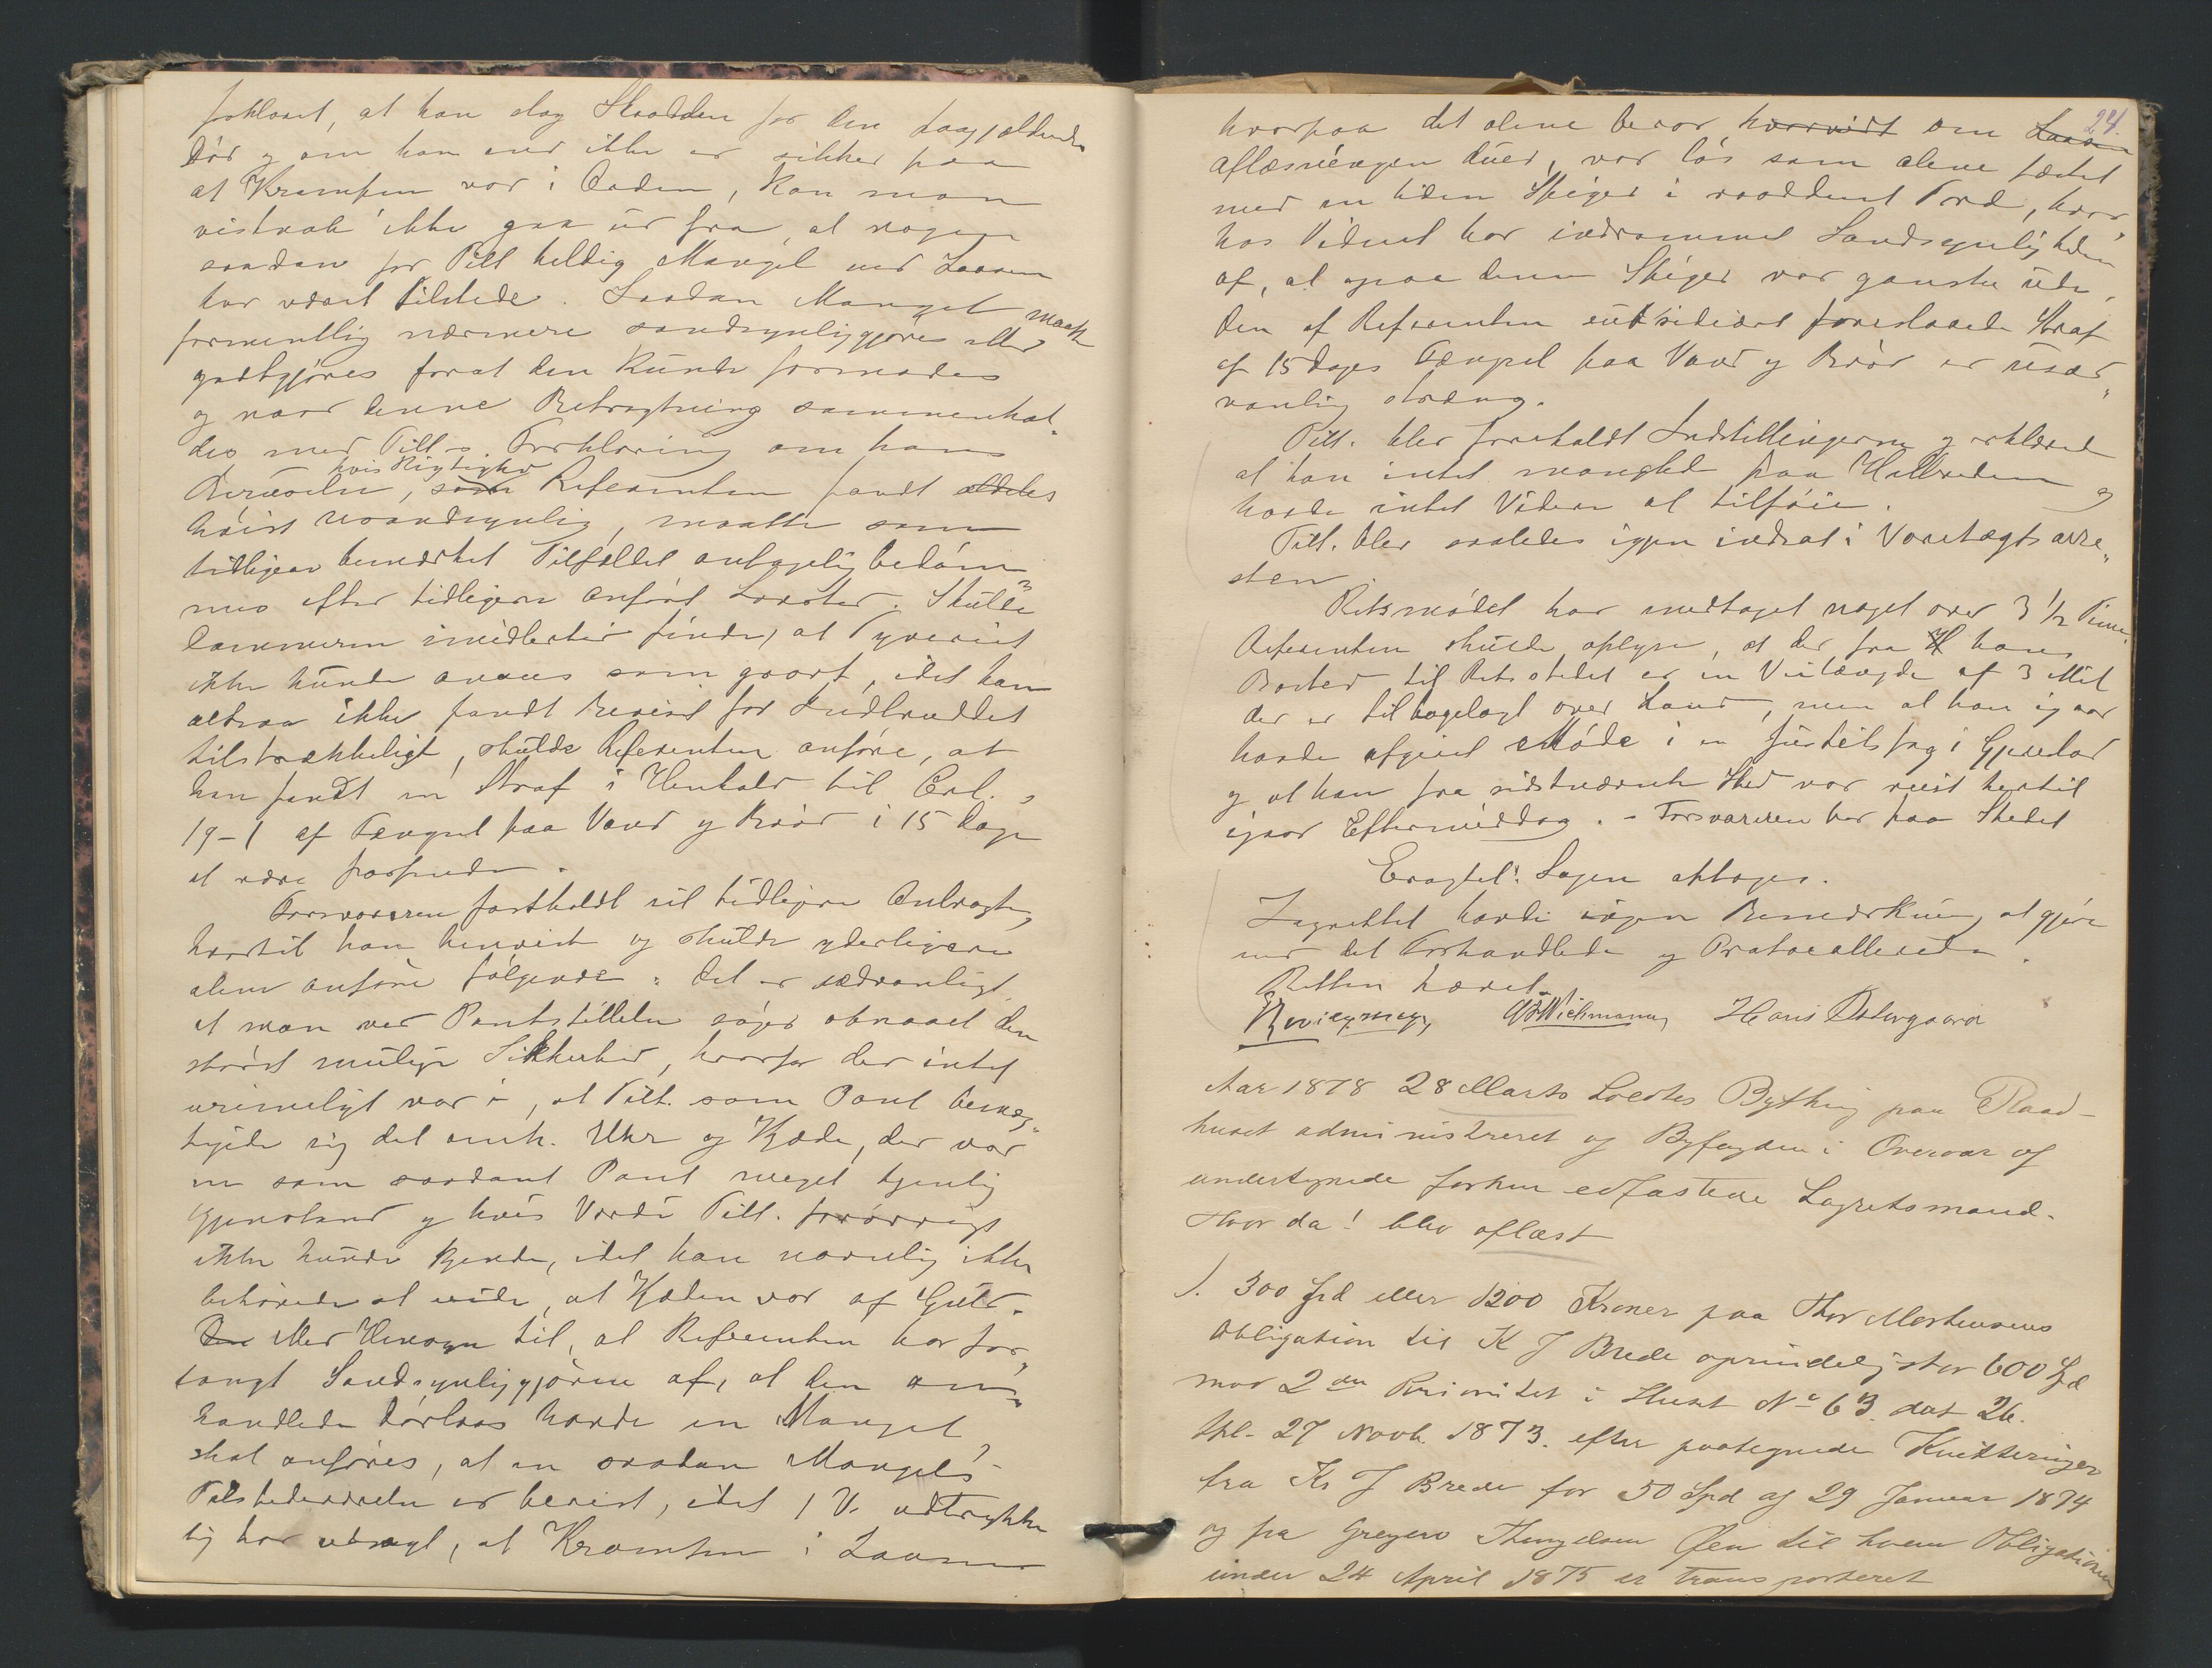 forklaret, at han slog Skodden for den paagjældende
Dör og om han end ikke er sikker paa
at Krampen var i Orden, kan man
vistnok ikke gaa ud fra, at nogen
saadan for Tilt. heldig Mangel ved Laasen
har været tilstede. Saadan Mangel maatte
formentlig nærmere sandsynliggjöres eller
godtgjöres forat den kunde formodes
og naar denne Betragtning sammenhol-
des med Tilt-s. Forklaring om hans
hvis Rigtighed
Beruselse, som Referenten fandt aldeles
höist usandsynlig, maatte som
tidligere bemærket Tilfældet antagelig bedöm-
mes efter tidligere anfört Lovsted. Skulde
Dommeren imidlertid finde, at Tyveriet
ikke kunde ansees som grovt, idet han
altsaa ikke fandt Beviset for Indbruddet
tilstrækkeligt, skulde Referenten anföre, at
han fandt en Straf i Henhold til Crl.
19-1 af Fængsel paa Vand og Bröd i 15 Dage
at være passende.
Forsvareren fastholdt sit tidligere Andragende,
hvortil han henviste og skulde yderligere
alene anföre fölgende: det er sædvanligt,
at man ved Pantstillelse söger opnaaet den
störst mulige Sikkerhed, hvorfor der intet
urimeligt var i, at Tilt. som Pant bemæg-
tigede sig det omh. Uhr og Kjæde, der var
en som saadant Pant meget tjenlig
Gjenstand og hvis Værdi Tilt. forövrigt
ikke kunde kjende, idet han navnlig ikke
behövede at vide, at Kjæden var af Guld.
Den Med Hensyn til, at Referenten har for-
langt Sandsynliggjörelse af, at den om-
handlede Dörlaas havde en Mangel
skal anföres, at en saadan Mangels
Tilstedeværelse er bevist, idet 1 V. udtrykke
lig har udsagt, at Krampen i Laasen
24.
hvorpaa det alene beror, hvorvidt om Laasen
aflæsningen duer, var lös samt alene fæstet
med en liden Spiger i raaddent Træ, hvor-
hos Vidnet har indrømmet Sandsynligheden
af, at ogsaa denne Spiger var ganske ude.
Den af Referenten subsidiært foreslaaede Straf
af 15 Dages Fængsel paa Vand og Bröd er usæd-
vanlig streng.
Tilt. blev foreholdt Indstillingerne og erklærede
at han intet manglede paa Helbreden og
havde intet Videre at tilföie.
Tilt. blev saaledes igjen indsat i Varetægtsarre-
sten.
Retsmödet har medtaget noget over 3 1/2 Time.
Referenten skulde oplyse, at der fra H hans
Bosted til Retsstedet er en Veilængde af 3 Mil
der er tilbagelagt over Land, men at han igaar
havde afgivet Möde i en Justitssag i
og at han fra sidstnævnte Sted var reist hertil
igaar Eftermiddag. - Forsvareren bor paa Stedet
Eragtet: Sagen optages.
Lagrettet havde ingen Bemærkning at gjöre
ved det Forhandlede og Protocollerede.
Retten hævet.
Wichmann, Hans Östergaard
Aar 1878 28 Marts holdtes Bything paa Raad-
huset administreret og Byfogden i Overvær af
undertegnede forhen edfæstede Lagretsmænd.
Hvor da! blev oplæst
1. 300 Spd eller 1200 Kroner paa Thor Mortensens
Obligation til K J Brede oprindelig stor 600 Spd
mod 2den Prioritet i Huset No 63. dat 26.
thl. 27 Novb. 1873. efter paategnede Kvitteringer
fra K J Brede for 50 Spd af 29 Januar 1874
og fra Gregers Thengelsen Öen til hvem Obligationen
under 24 April 1875 er transporteret